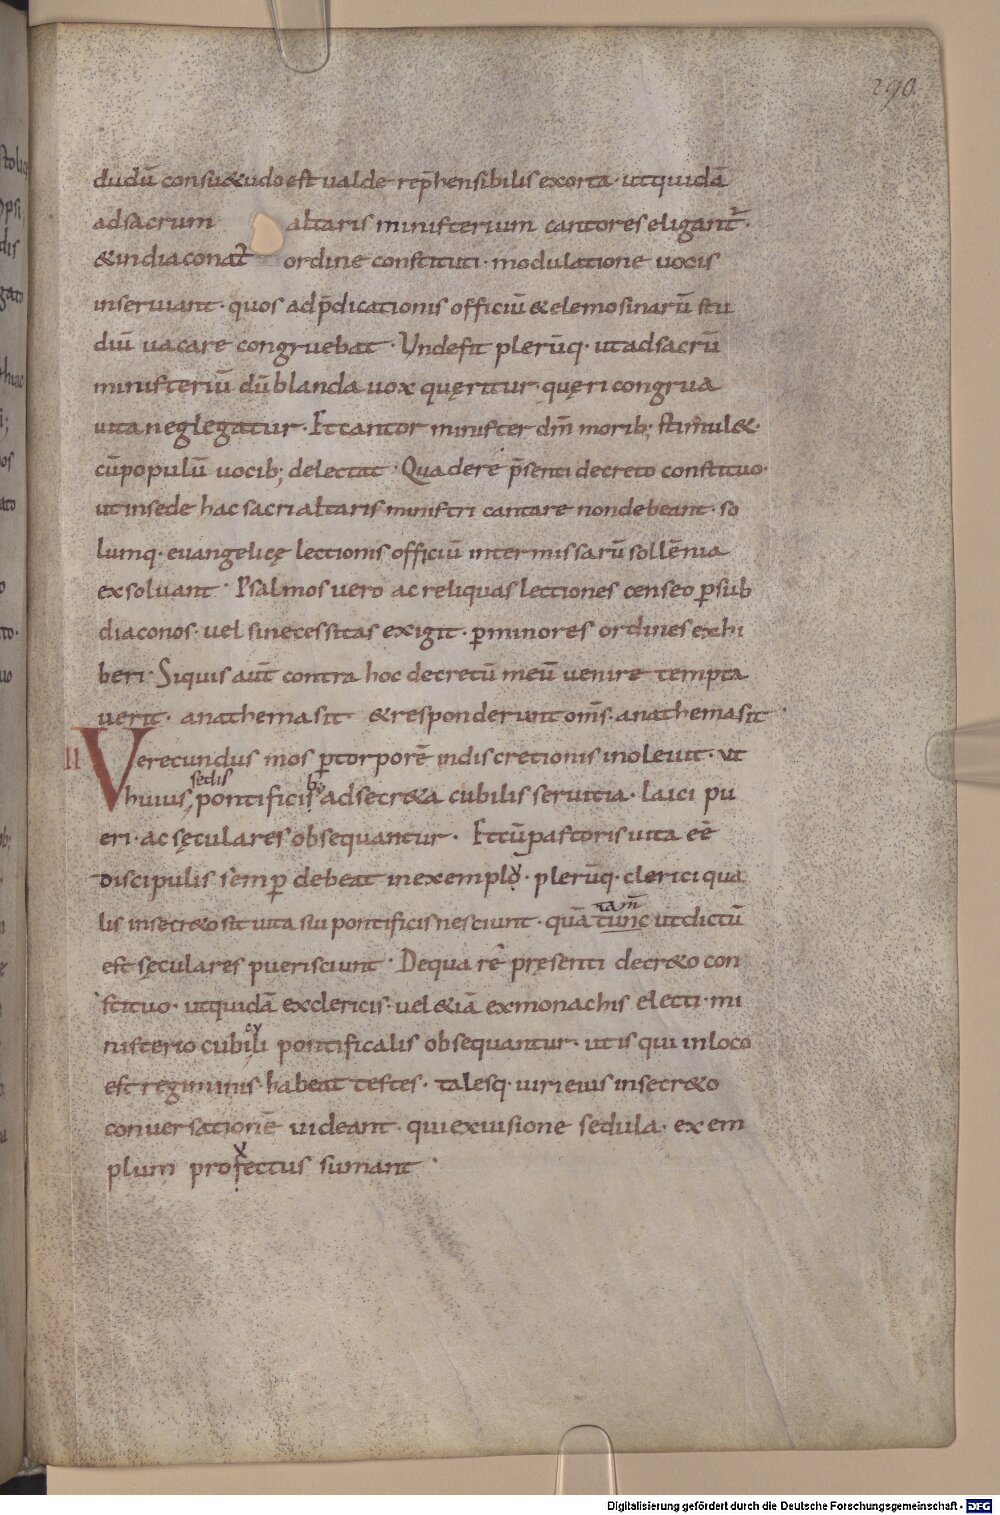 290
dudū consu&udo est ualde rep̄hensibilis exorta · ut quidā
ad sacrum altaris ministerium cantores eligant̄ ·
& in diaconat̄ ordine constituti · modulatione uocis
inseruiant · quos ad p̄dicationis officiū & elemosinarū stu
diū uacare congruebat · Unde fit plerūq · ut ad sacrū
ministeriū dū blanda uox quęritur · quęri congrua
uita neglegatur · Et cantor minister dm̄ morib; stimul& ·
cū populū uocib; delectat · Qua de re p̄senti decreto constituo ·
ut in sede hac sacri altaris ministri cantare non debeant · so
lumq · euangelicę lectionis officiū inter missarū sollēnia
exsoluant · Psalmos uero ac reliquas lectiones censeo p̱ sub
diaconos · uel si necessitas exigit · p̱ minores ordines exhi
beri · Siquis aūt contra hoc decretū meū uenire tempta
uerit · anathema sit & responderunt om̄s · anathema sit
II Verecundus mos p̱ torporē indiscretionis inoleuit · ut
sedis b;
huius, pontificis ad secr&a cubilis seruitia · laici pu
eri · ac sęculares obsequantur · Et cū pastoris uita eē
discipulis semp̱ debeat in exemplo · plerūq · clerici qua
lis in secr&o sit uita sui pontificis nesciunt · quā tunc ut dictū
tam̄
est sęculares pueri sciunt · De qua rē pręsenti decr&o con
stituo · ut quidā ex clericis · uel &iā ex monachis electi · mi
nisterio cubili pontificalis obsequantur · ut is qui in loco
est regiminis · habeat testes · talesq · uiri eius in secr&o
conuersationē uideant · qui ex uisione sedula · exem
plum profectus sumant ·
Digitalisierung gefördert durch die Deutsche Forschungsgemeinschaft - DFG